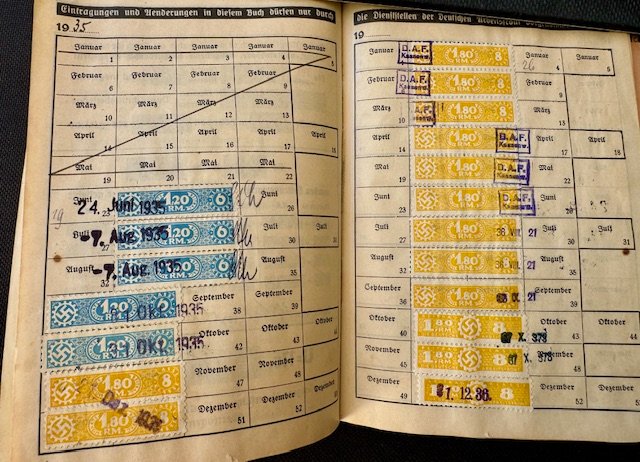 Eintragungen und Aenderungen in diesem Buch dürfen nur durch
1935
Januar Januar Januar Januar Januar
1 2 3 4 5
Februar Februar Februar Februar
6 7 8 9
März März März März
10 11 12 13
April April April April April
14 15 16 17 18
Mai Mai Mai Mai
19 20 21 22
Juni 24. Juni 1935 1.20 RM. 6 Juni
23
Juli -7. Aug. 1935 1.20 RM. 6 Juli Juli
27 30 31
August -7. Aug. 1935 1.20 RM. 6 August
32 35
1.20 RM. 1 Okt. 1935 September September
38 39
1.20 RM. 1 Okt. 1935 Oktober Oktober Oktober
42 43 44
1.80 RM. 8 November November
47 48
1.80 RM. 8 Dez. Dezember Dezember Dezember
51 52
die Dienststellen der Deutschen Arbeitsfront
19
Januar D.A.F. 1.80 RM. 8 Januar Januar
1 4 5
Februar D.A.F. 1.80 RM. 8 Februar
6 9
März A.F. 1.80 RM. 8 März
10 13
April 1.80 RM. D.A.F. April April
14 17 18
Mai 1.80 RM. D.A.F. Mai
19 22
Juni 1.80 RM. D.A.F. Juni
23
Juli 1.80 RM. 21 Juli Juli
27 30 31
August 1.80 RM. 21 August
32 35
September 1.80 RM. X. 21 September
36 39
Oktober 1.80 RM. 8 X. 373 Oktober Oktober
40 43 44
November 1.80 RM. 8 X. 373 November
45 48
Dezember 1. 12. 36. 8 Dezember Dezember
49 52